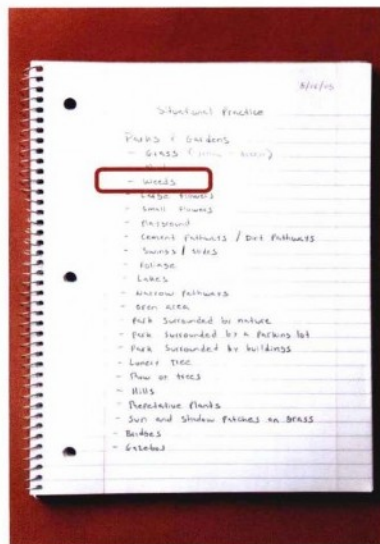 Situational Practice
Parks & Gardens
- Grass (
- Weeds
- Large flowers
- Small flowers
- Playground
- Cement Pathways / Dirt Pathways
- Swings / slides
- Foliage
- Lakes
- Narrow Pathways
- Open Area
- Park Surrounded by nature
- Park Surrounded by a Parking lot
- Park Surrounded by buildings
- Lonely Tree
- Row of trees
- Hills
- Repetative Plants
- Sun and Shadow Patches on Grass
- Bridges
- Gazebos